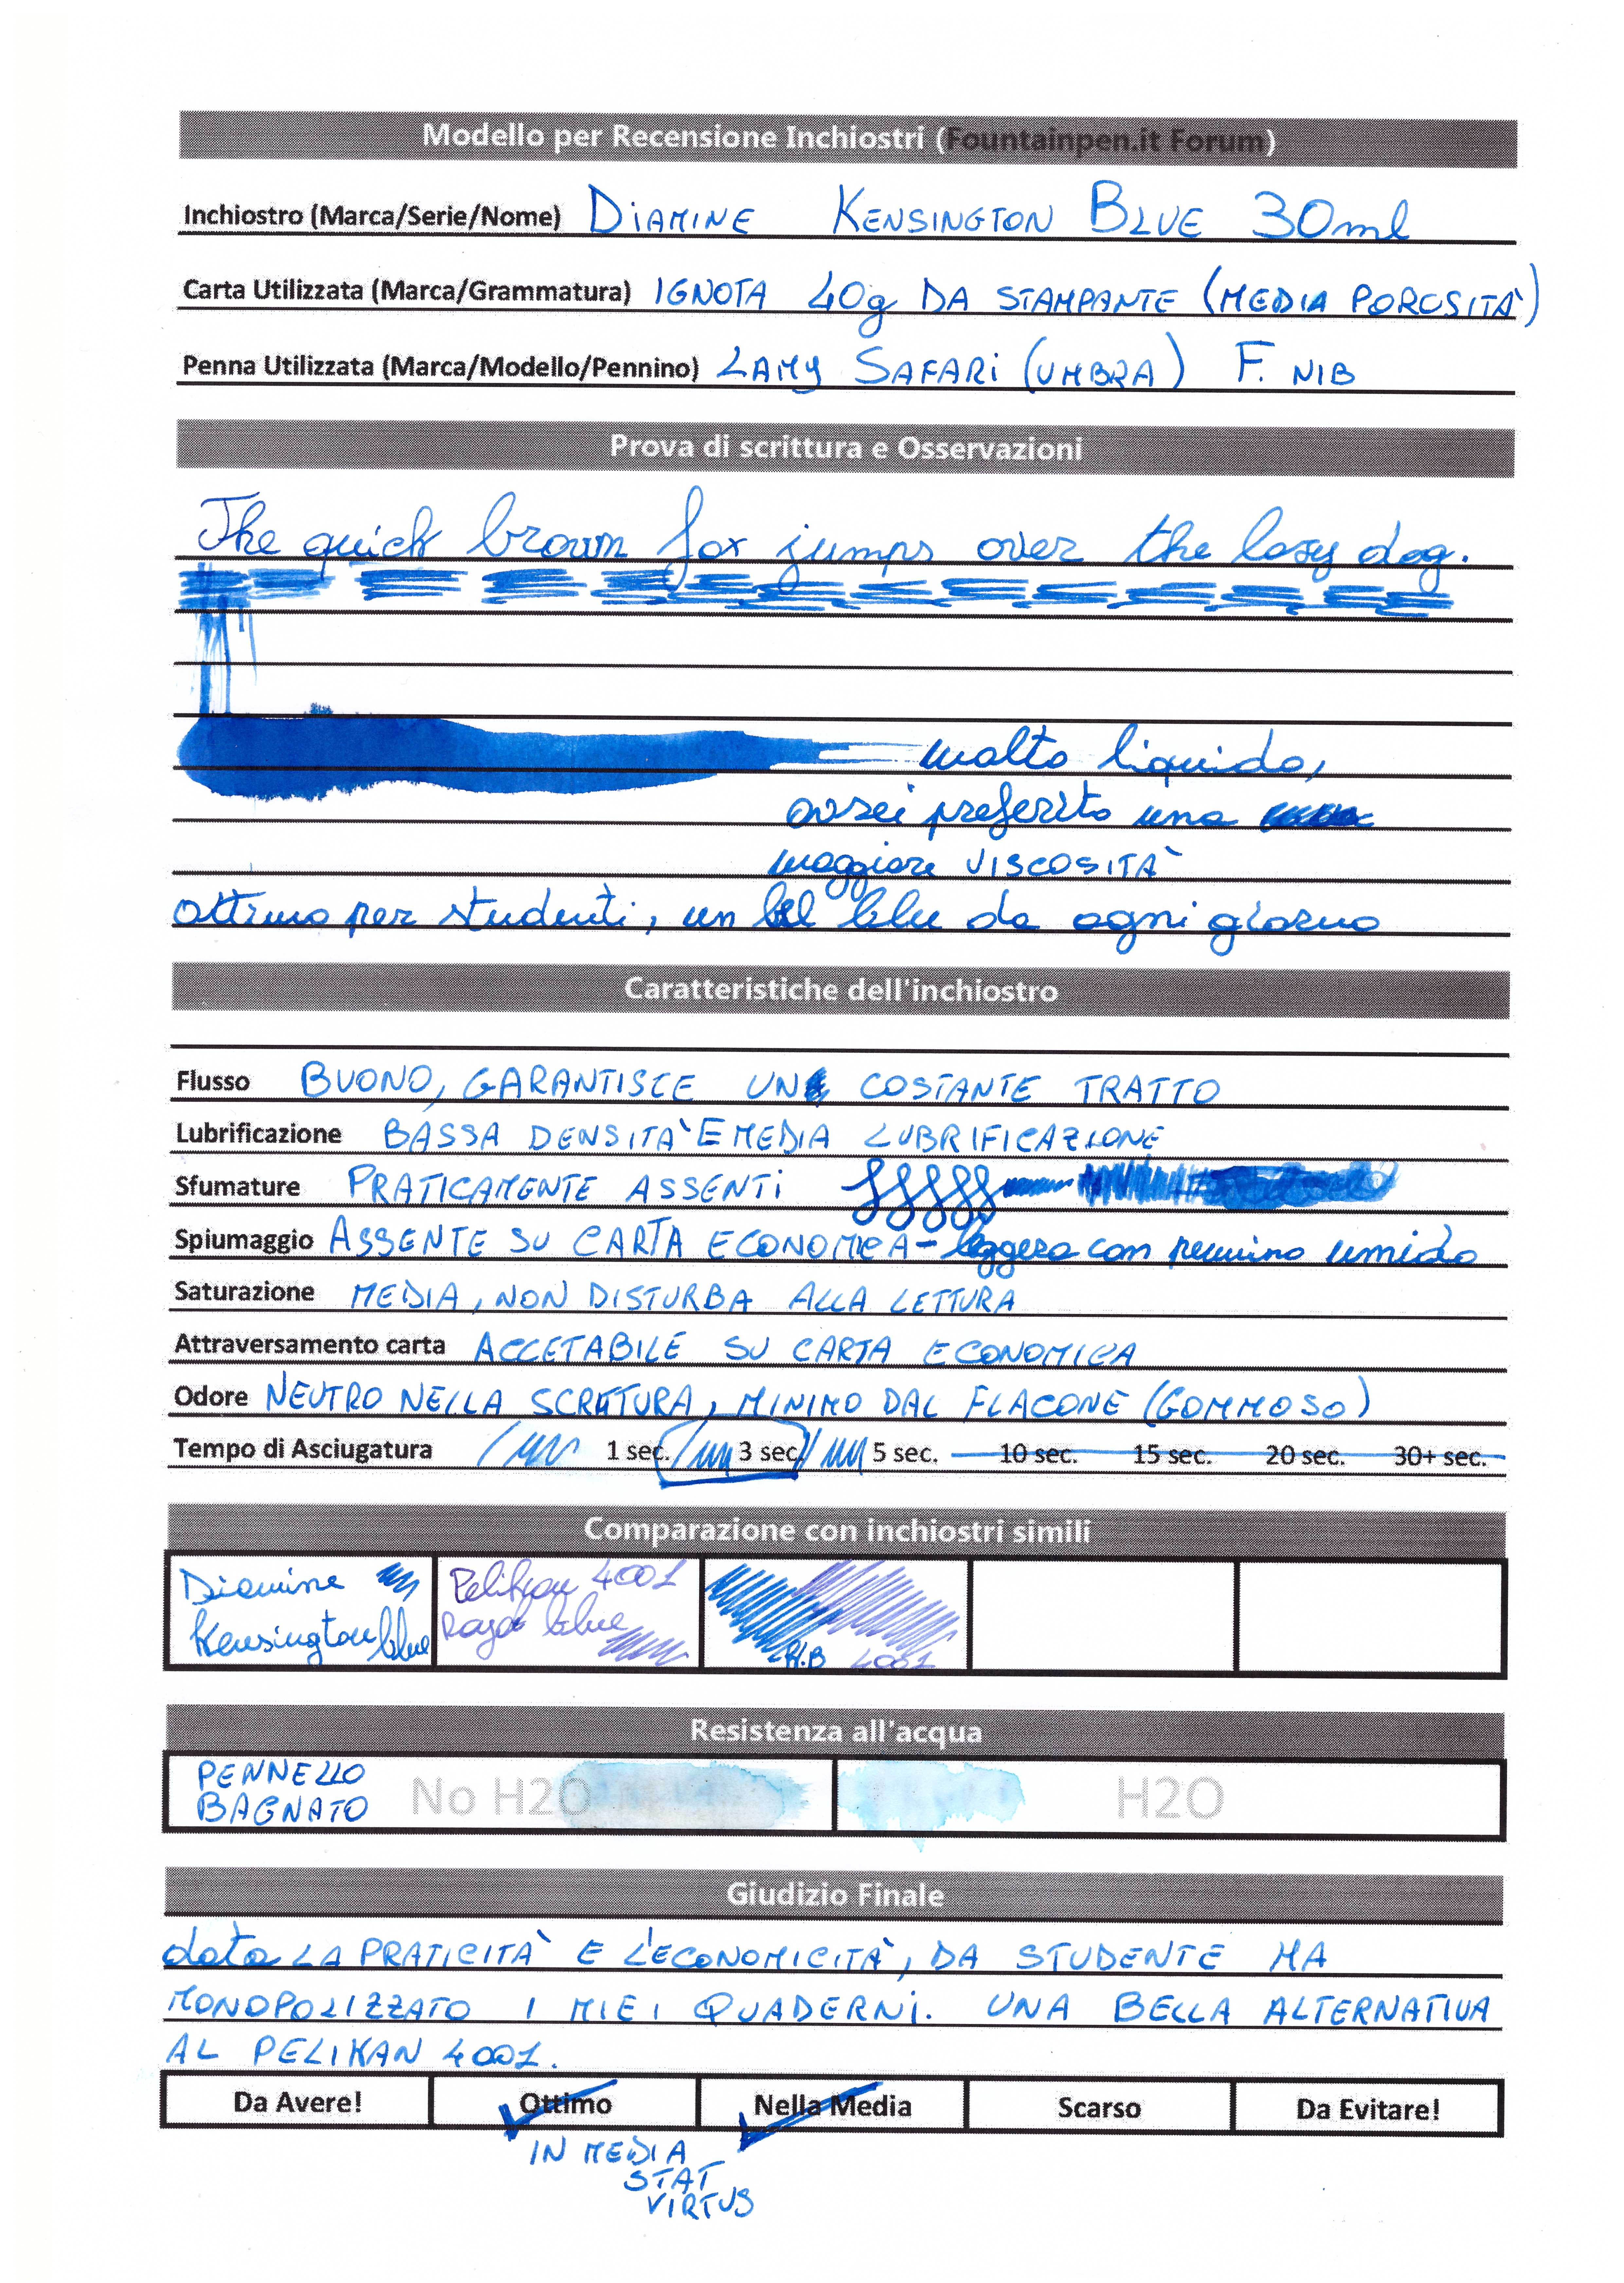 Modello per Recensione Inchiostri (Fountainpen.it Forum)
Inchiostro (Marca/Serie/Nome) DiAMINE KENSINGTON BLUE 30ml
Carta Utilizzata (Marca/Grammatura) IGNOTA 40g DA STAMPANTE (MEDIA POROSITA')
Penna Utilizzata (Marca/Modello/Pennino) LAMY SAFARi (UMBRA) F. NIB
Prova di scrittura e Osservazioni
The quick brown fox jumps over the lasy dog.
molto liquido,
avrei preferito una
maggiore VISCOSITÀ
ottimo per studenti, un bel blu da ogni giorno
Caratteristiche dell'inchiostro
Flusso BUONO, GARANTISCE UN COSTANTE TRATTO
Lubrificazione BASSA DENSITA' E MEDIA LUBRIFICAZIONE
Sfumature PRATICAMENTE ASSENTi
Spiumaggio ASSENTE SU CARTA ECONOMICA - leggero con pennino umido
Saturazione MEDIA, NON DISTURBA ALLA LETTURA
Attraversamento carta ACCETABILE SU CARTA ECONOMICA
Odore NEUTRO NELLA SCRITTURA, MINIMO DAL FLACONE (GOMMOSO)
Tempo di Asciugatura 1 sec. 3 sec. 5 sec. 10 sec. 15 sec. 20 sec. 30+ sec.
Comparazione con inchiostri simili
Diamine Pelikan 4001
Kensington blue Royal blue K.B 4001
Resistenza all'acqua
PENNELLO
BAGNATO No H2O H2O
Giudizio Finale
data LA PRATICITA' E L'ECONOMICITA', DA STUDENTE HA
MONOPOLIZZATO I MIEI QUADERNi. UNA BELLA ALTERNATIVA
AL PELIKAN 4001.
Da Avere! Ottimo Nella Media Scarso Da Evitare!
IN MEDIA
STAT
VIRTUS